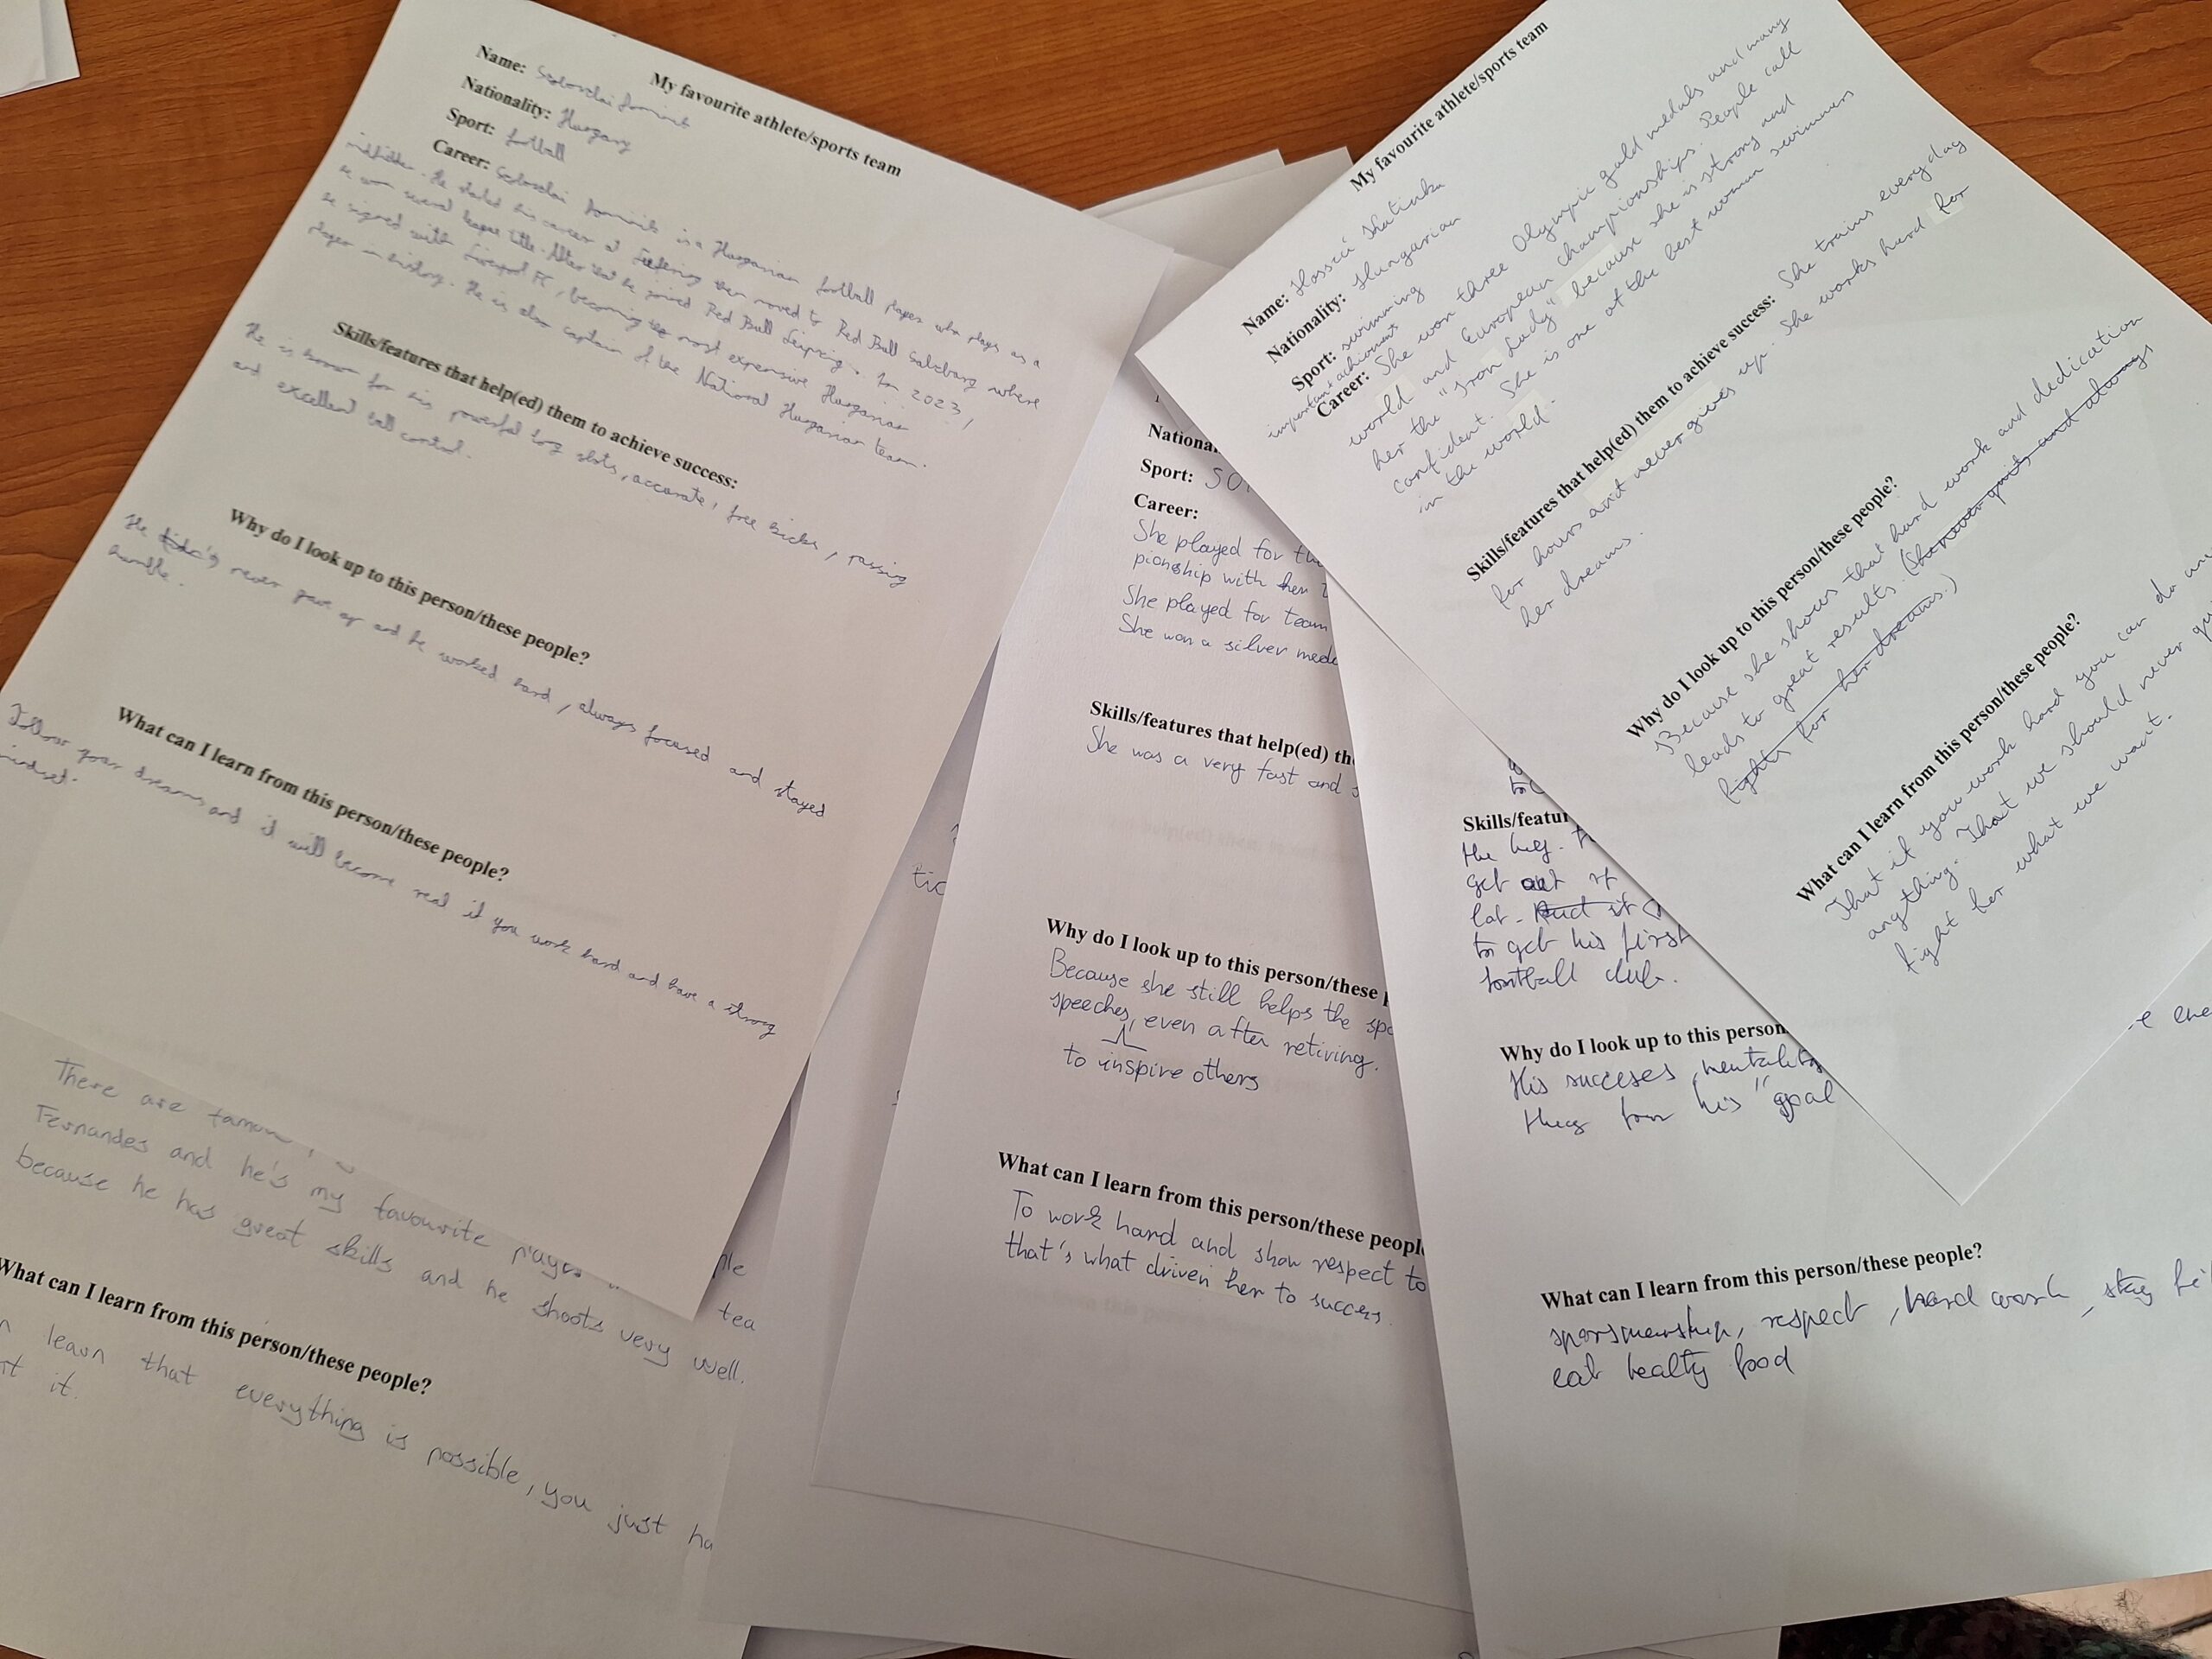 My favourite athlete/sports team
Name: Szoboszlai Dominik
Nationality: Hungary
Sport: football
Career: Szoboszlai Dominik is a Hungarian football player who plays as a
midfielder. He started his career at Liefering then moved to Red Bull Salzburg where
he won several league title. After that he joined Red Bull Leipzig. In 2023,
he signed with Liverpool FC, becoming the most expensive Hungarian
player in history. He is also captain of the National Hungarian team.
Skills/features that help(ed) them to achieve success:
He is known for his powerful long shots, accurate, free kicks, passing
and excellent ball control.
Why do I look up to this person/these people?
He never gave up and he worked hard, always focused and stayed
humble.
What can I learn from this person/these people?
Follow your dreams and it will become real if you work hard and have a strong
mindset.
There are
Fernandes and he's my favourite
because he has great skills and he shoots very well.
What can I learn from this person/these people?
learn that everything is possible, you just ha
it.
ple
tea
tic
Nationa
Sport:
Career:
She played for th
pionship with her
She played for team
She won a silver meda
Skills/features that help(ed) th
She was a very fast and s
Why do I look up to this person/these p
Because she still helps the spo
speeches, even after retiving.
to inspire others
What can I learn from this person/these peopl
To work hard and show respect to
that's what driven her to success.
Skills/featur
the leg.
get out of
lat. And it
to get his first
football club.
Why do I look up to this person
His succeses, mentality
his "goal
What can I learn from this person/these people?
sporsmenship, respect, hard work, stay
eat healty food
My favourite athlete/sports team
Name: Hosszú Katinka
Nationality: Hungarian
Sport: swimming
important achiements
Career: She won three Olympic gould medals and many
world and European championships. People call
her the "Iron Lady" because she is strong and
confident. She is one of the best woman swimmers
in the world.
Skills/features that help(ed) them to achieve success: She trains everyday
for hours and never gives up. She works hard for
her dreams.
Why do I look up to this person/these people?
Because she shows that hard work and dedication
leads to great results. (She never quits and always
fights for her dreams.)
What can I learn from this person/these people?
That if you work hard you can do
anything. That we should never
fight for what we want.